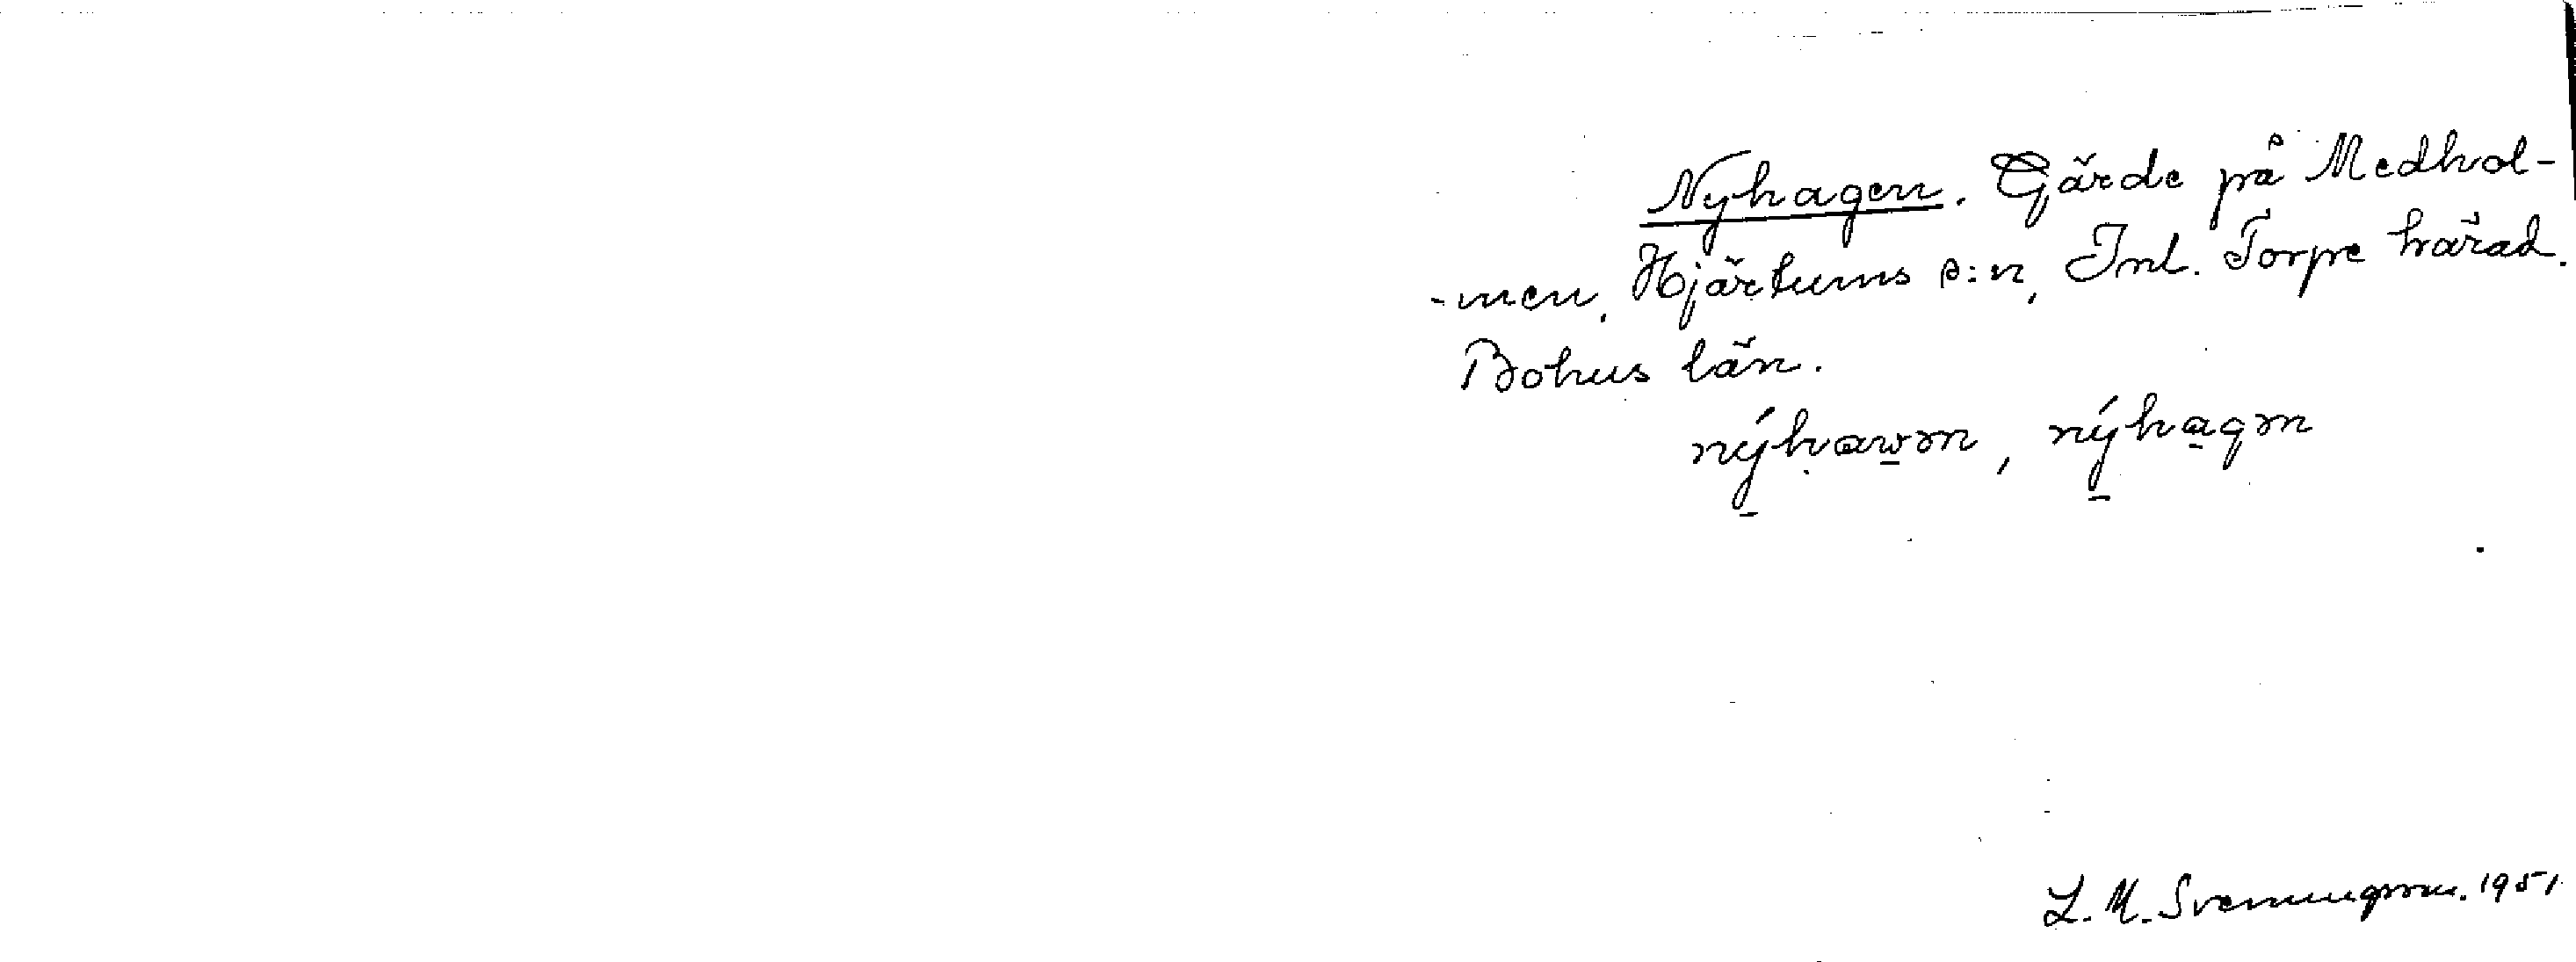 Nyhagen. Gärde på Medhol-
-men, Hjärtums s:n, Inl. Torpe härad.
Bohus län.
nýhawm, nýhagm
L. M. Svenungsson. 1951.